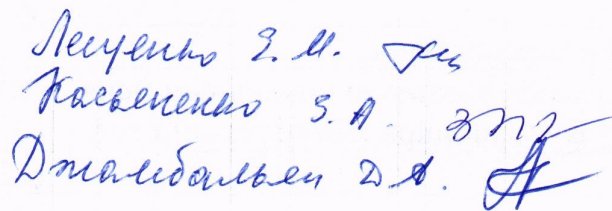 Лещенко Е. М.
Касьяненко З. А.
Джамбальян Д А.